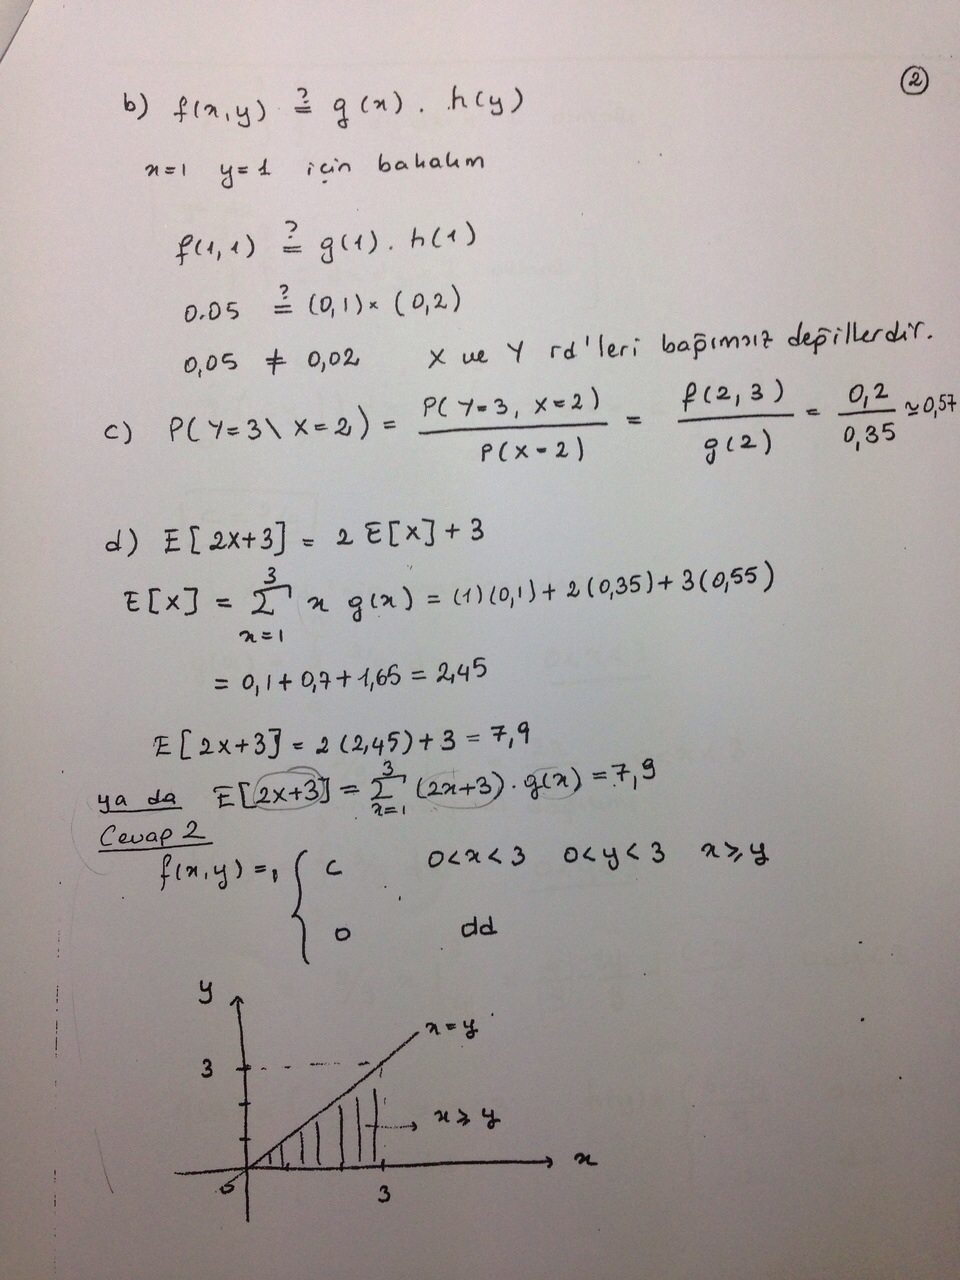 2
b) f(x,y) ≟ g(x) . h(y)
x=1 y=1 için bakalım
f(1,1) ≟ g(1) . h(1)
0.05 ≟ (0,1) x (0,2)
0,05 ≠ 0,02 X ve Y rd'leri bağımsız değillerdir.
c) P(Y=3 \ X=2) = P(Y=3, X=2) / P(X=2) = f(2,3) / g(2) = 0,2 / 0,35 ≃ 0,57
d) E[2X+3] = 2 E[X] + 3
E[X] = Σ_{x=1}^{3} x g(x) = (1)(0,1) + 2(0,35) + 3(0,55)
= 0,1 + 0,7 + 1,65 = 2,45
E[2X+3] = 2(2,45) + 3 = 7,9
ya da E[2X+3] = Σ_{x=1}^{3} (2x+3) . g(x) = 7,9
Cevap 2
f(x,y) = { c 0<x<3 0<y<3 x≥y
0 dd
y
x=y
3
x≥y
x
0
3